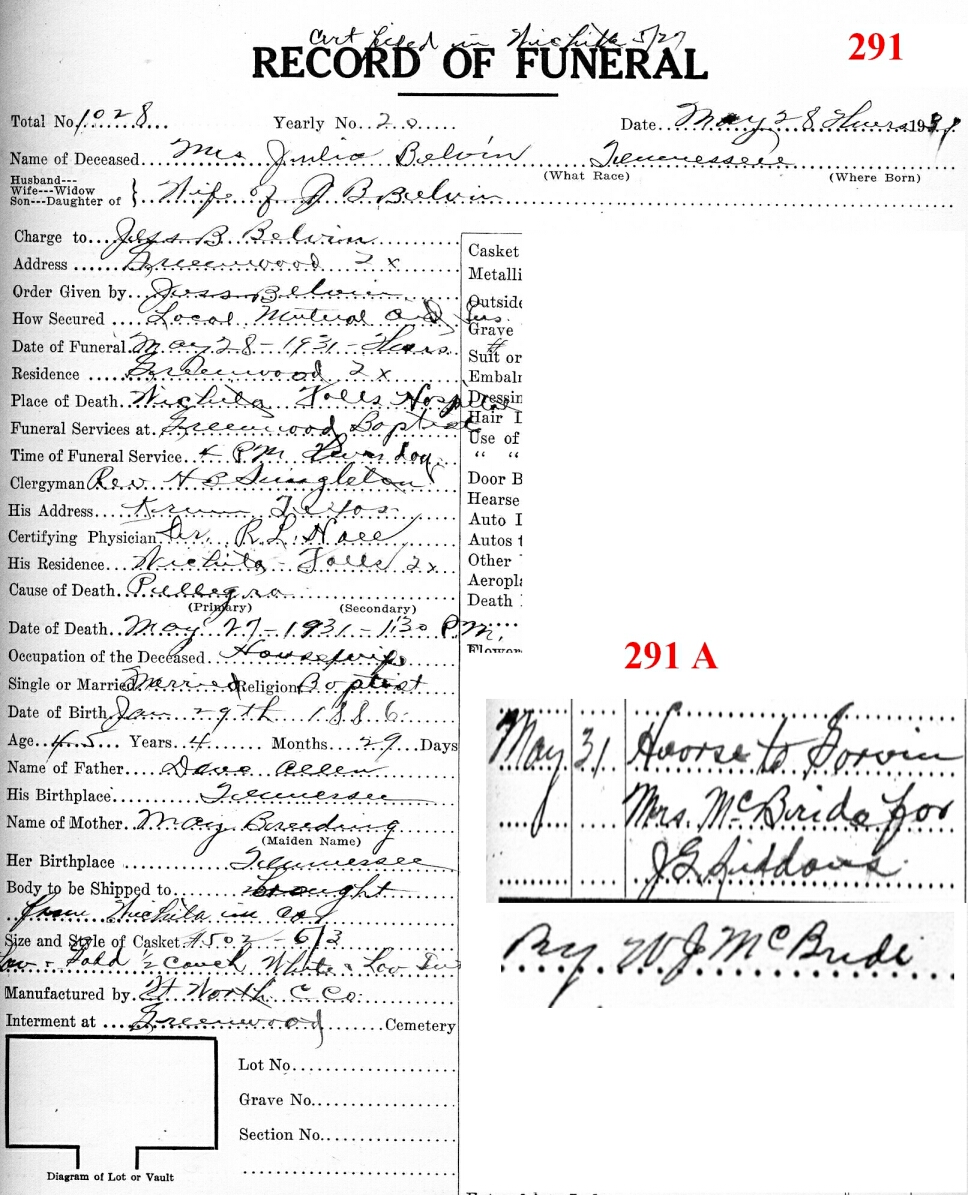 Cert filed in Wichita 5/27
291
RECORD OF FUNERAL
Total No. 1028 Yearly No. 20 Date May 28 Thurs 1931
Name of Deceased Mrs Julia Belvin Tennessee
(What Race) (Where Born)
Husband---
Wife---Widow
Son---Daughter of } Wife of J B Belvin
Charge to Jess B Belvin
Address Greenwood 2x
Order Given by Jess Belvin
How Secured Local Mutual and Ins.
Date of Funeral May 28 - 1931 - Thurs
Residence Greenwood 2x
Place of Death Wichita Falls Hospital
Funeral Services at Greenwood Baptist
Time of Funeral Service 4 P.M. Thursday
Clergyman Rev H B Singleton
His Address Texas
Certifying Physician Dr. R. L.
His Residence Wichita Falls 2x
Cause of Death Pellegra
(Primary) (Secondary)
Date of Death May 27 - 1931 - 1:30 P.M,
Occupation of the Deceased Housewife
Single or Married Married Religion Baptist
Date of Birth Jan 29th 1886
Age 45 Years 4 Months 29 Days
Name of Father Dave Allen
His Birthplace Tennessee
Name of Mother May Breeding
(Maiden Name)
Her Birthplace Tennessee
Body to be Shipped to Brought
from Wichita in
Size and Style of Casket 4502 - 6/3
1/2 Couch White
Manufactured by Ft Worth C Co.
Interment at Greenwood Cemetery
Lot No.
Grave No.
Section No.
Diagram of Lot or Vault
Casket
Metalli
Outside
Grave
Suit or
Embalm
Dressin
Hair D
Use of
“ “
Door B
Hearse
Auto D
Autos f
Other
Aeropla
Death
Flower
291 A
May 31 Hearse to
Mrs. McBride for
J G Siddons
By W J McBride